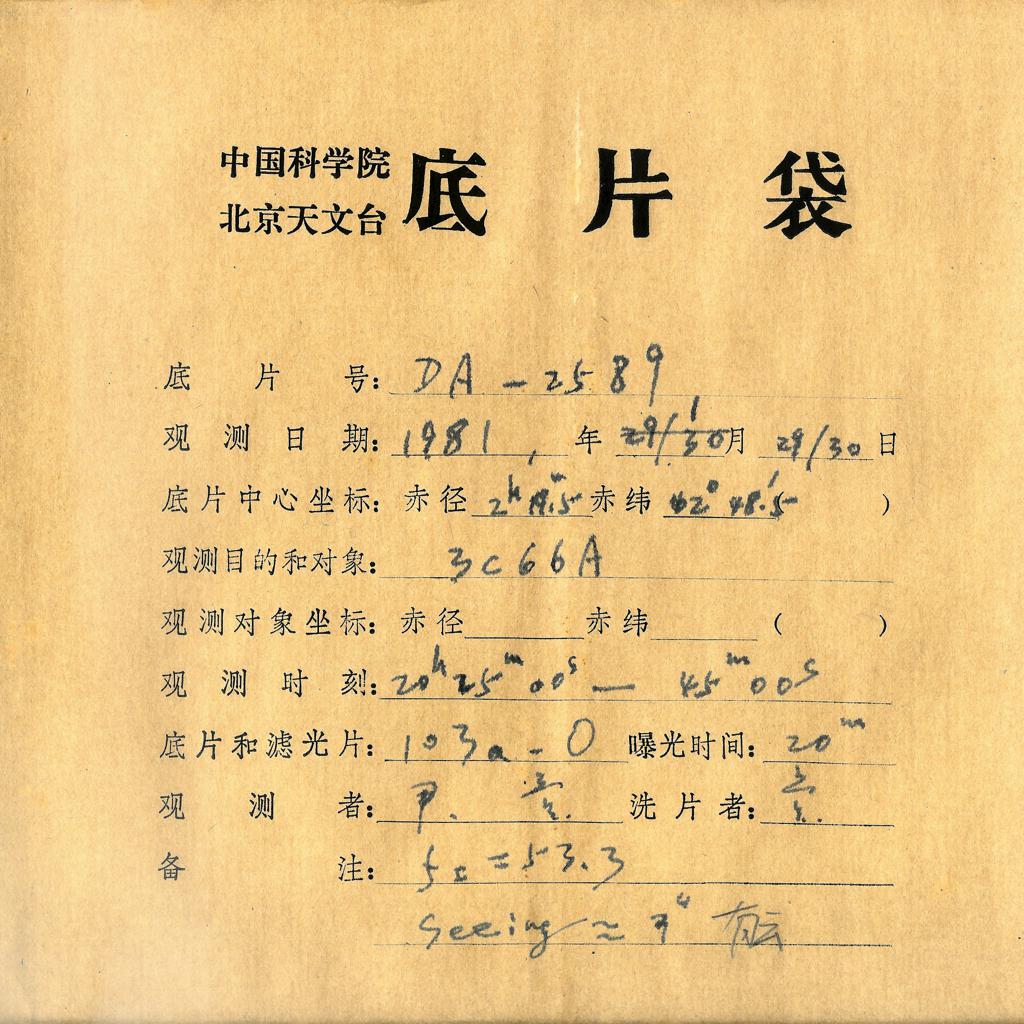 中国科学院
北京天文台
底片袋
底片号: DA-2589
观测日期: 1981 年 1 月 29/30 日
底片中心坐标: 赤径 2ʰ 19.ᵐ5 赤纬 42° 48.′5 )
观测目的和对象: 3C66A
观测对象坐标: 赤径 赤纬 ( )
观测时刻: 20ʰ25ᵐ00ˢ — 45ᵐ00ˢ
底片和滤光片: 103a-O 曝光时间: 20ᵐ
观测者: 洗片者:
备注: = 53.3
Seeing ≈ 3" 有云